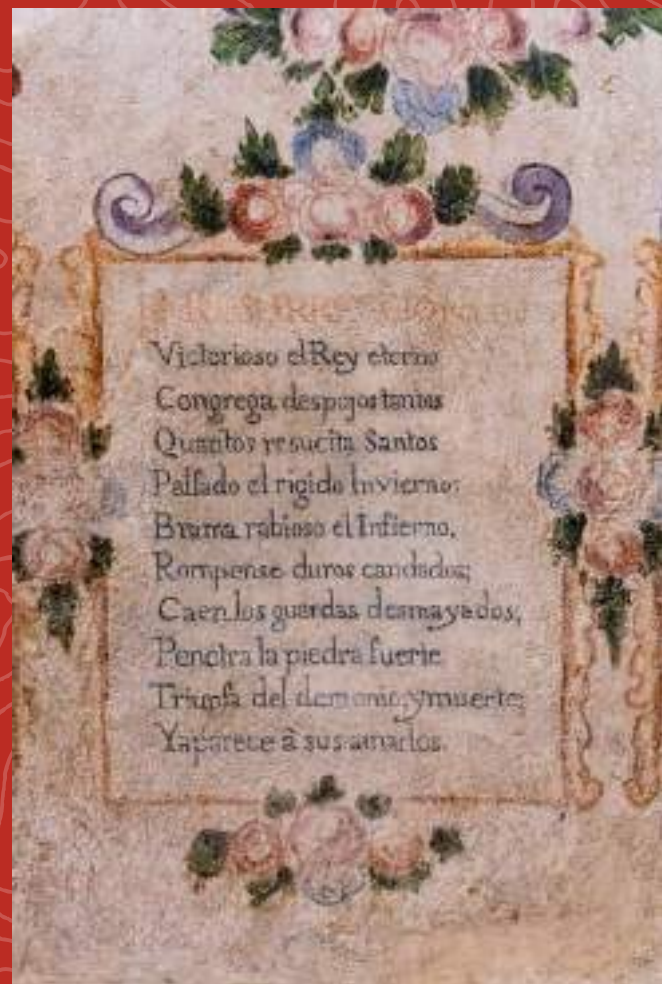 Victorioso el Rey eterno
Congrega despojos tantos
Quantos resucita Santos
Passado el rigido Invierno:
Brama rabioso el Infierno,
Rompense duros candados;
Caen los guardas desmayados,
Penetra la piedra fuerte
Triunfa del demonio, y muerte;
Y aparece à sus amados.